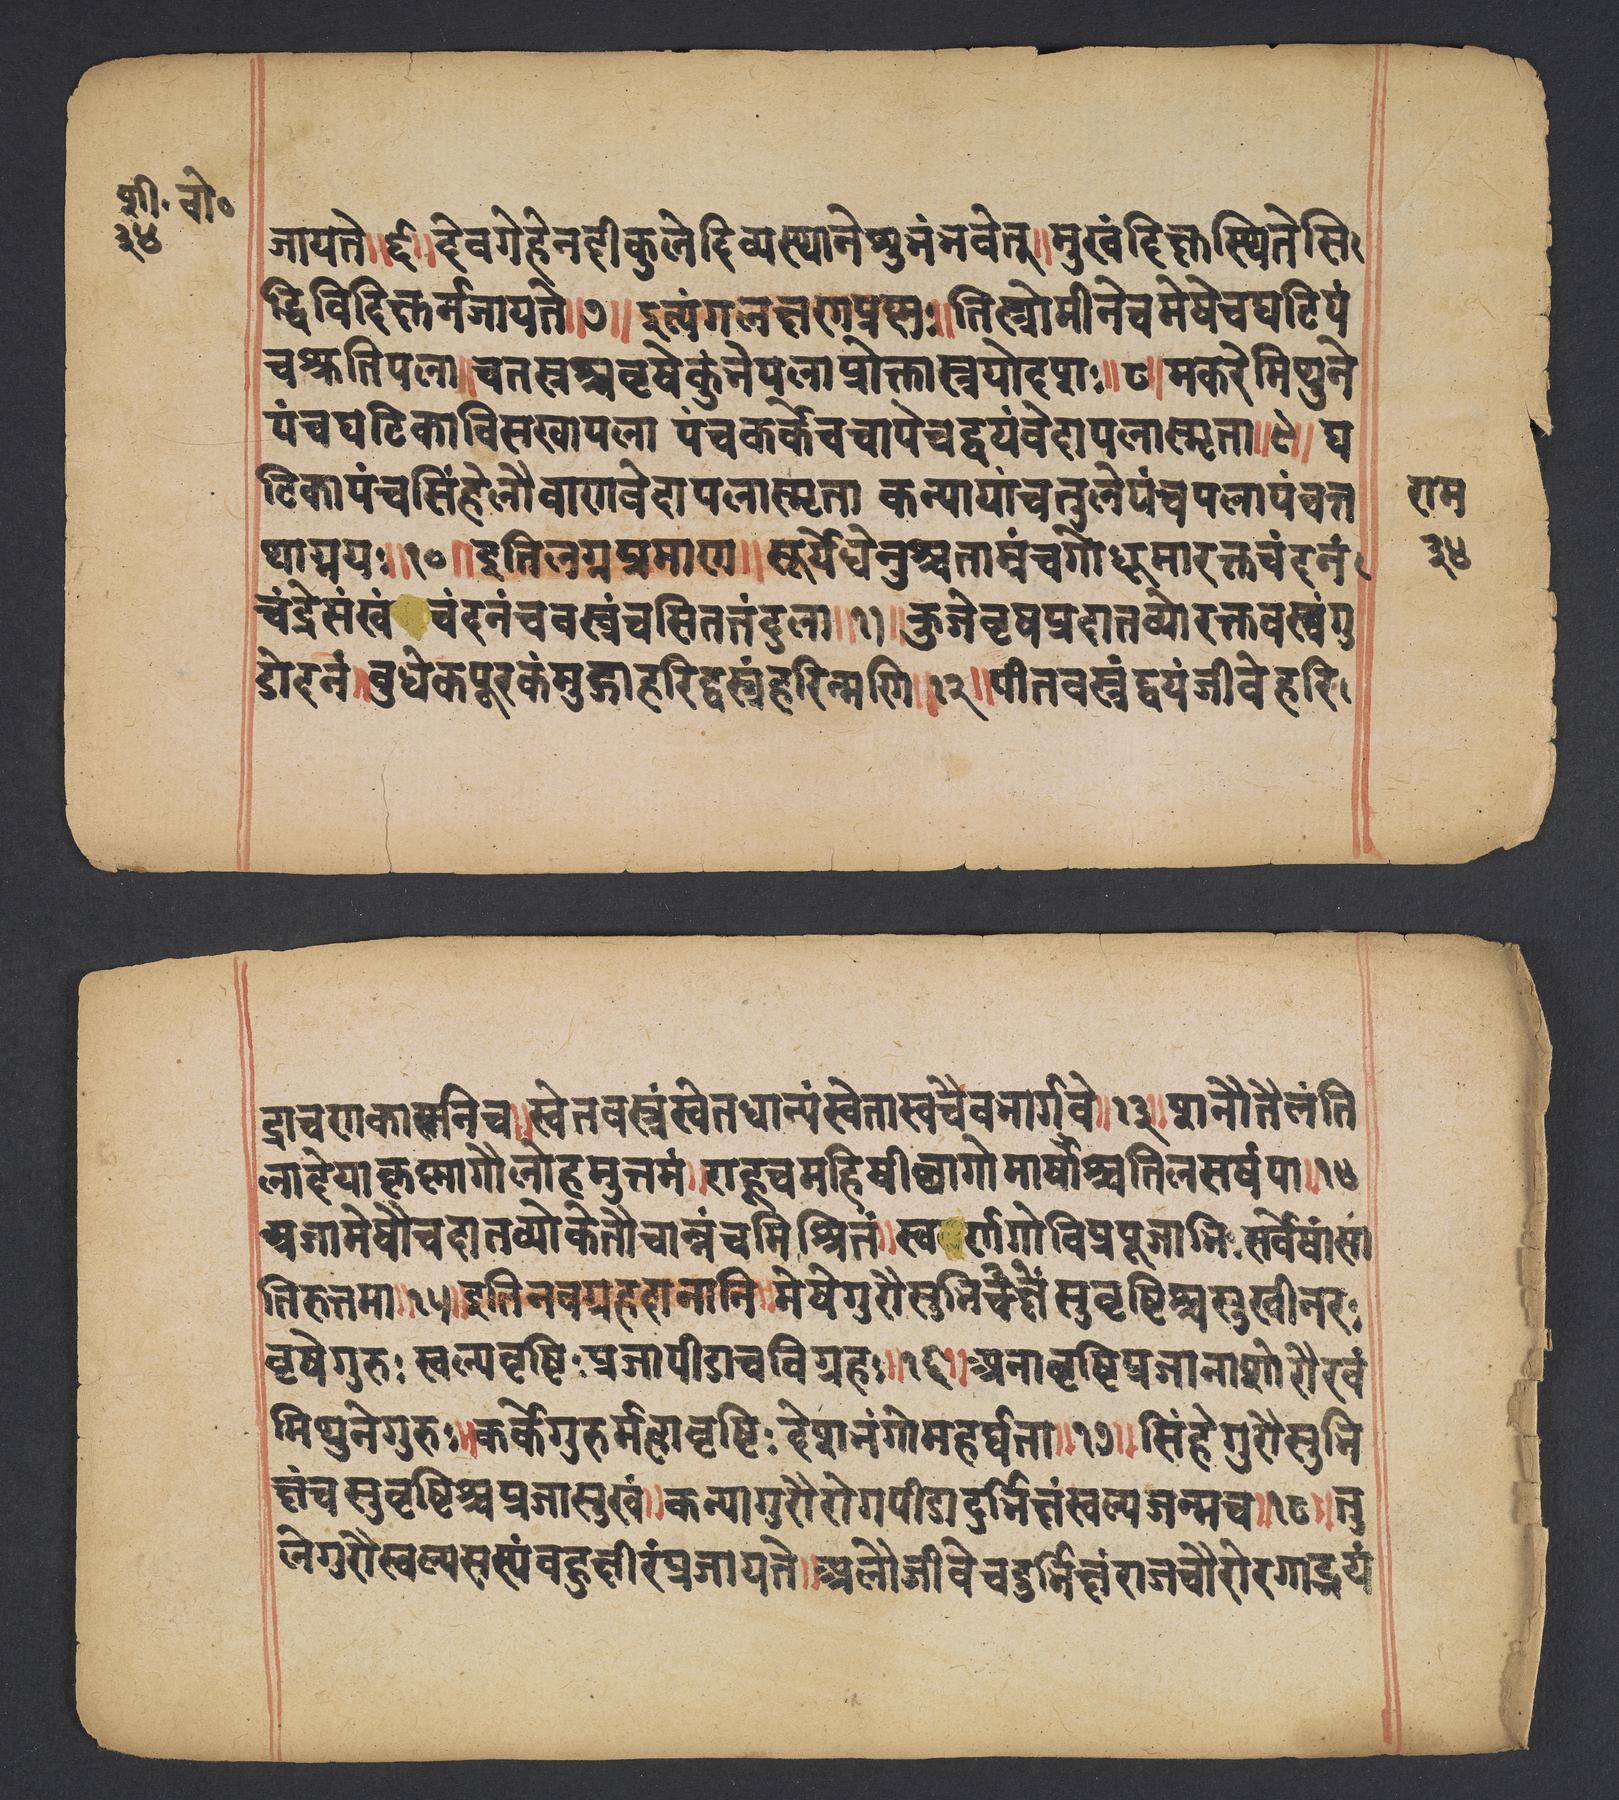 शी॰ वो॰
३४
जायते ॥ ६ ॥ देवगेहेनदीकुलेदिव्यस्थानेशुभंभवेत् ॥ मुखंदिक्तास्थितेसि
द्विविदिक्तर्नजायते ॥ ७ ॥ इत्यंगलक्षणप्रश्नः ॥ तिस्त्रोमीनेचमेषेचघटिपं
चश्रुतिपला ॥ चतस्रश्चवृषेकुंभेपलाप्रोक्तास्त्रयोदशः ॥ ८ ॥ मकरेमिथुने
पंचघटिकाविसखापला पंचकर्केचचापेचद्वयंवेदापलास्मृता ॥ ९ ॥ घ
टिकापंचसिंहेलौवाणवेदापलास्मृता कन्यायांचतुलेपंचपलापंचत
थाग्नयः ॥ १० ॥ इतिलग्नप्रमाण ॥ सूर्येधेनुश्चताम्रंचगोधूमारक्तचंदनं
चंद्रेसंखं चंदनंचवस्त्रंचसिततंदुला ॥ ११ ॥ कुजेवृषप्रदातव्योरक्तवस्त्रंगु
डोदनं ॥ वुधेकपूरकंमुद्गाहरिद्वस्त्रंहरिन्मणि ॥ १२ ॥ पीतवस्त्रंद्वयंजीवेहरि
राम
३४
द्राचणकास्मनिच ॥ स्वेतवस्त्रंस्वेतधान्यंस्वेतास्वचैवभार्गवे ॥ १३ ॥ शनौतैलंति
लादेयाकृस्मागौलोहमुत्तमं ॥ राहूचमहिषीछागोमार्षाश्चतिलसर्षपा ॥ १४
अजामेषौचदातव्योकेतौचान्नंचमिश्रितं ॥ स्व र्णगोविप्रपूजाभिः सर्वेषांसा
तिरुत्तमा ॥ १५ ॥ इतिनवग्रहदानानि ॥ मेषेगुरौसुभिक्षंचसुवृष्टिश्चसुखीनरः
वृषेगुरुः स्वल्पवृष्टिः प्रजापीडाचविग्रहः ॥ १६ ॥ अनावृष्टिप्रजानाशोरौरवं
मिथुनेगुरुः ॥ कर्केगुरुर्महावृष्टिः देशनंगोमहर्घता ॥ १७ ॥ सिंहेगुरौसुभि
क्षंचसुवृष्टिश्चप्रजासुखं ॥ कन्यागुरौरोगपीडादुर्भिक्षंस्वल्पजन्मच ॥ १८ ॥ तु
लेगुरौस्वल्पसस्यंवहुक्षीरंप्रजायते ॥ अलौजीवेचदुर्भिक्षंराजचौरोरगाद्भयं